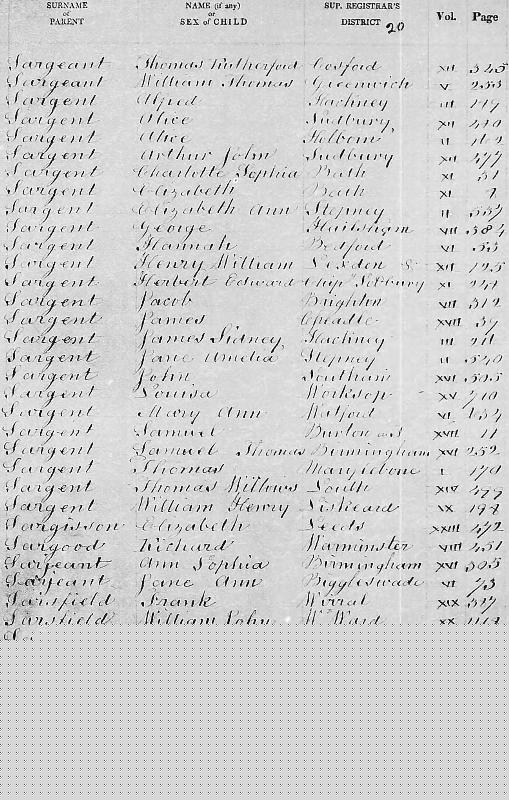 SURNAME of PARENT NAME (if any) or SEX of CHILD SUP. REGISTRAR'S DISTRICT 20 Vol. Page
Sargeant Thomas Rutherford Cosford XII 345
Sargeant William Thomas Greenwich V 253
Sargent Alfred Hackney III
Sargent Alice Sudbury XII
Sargent Alice Holborn II
Sargent Arthur John Sudbury XII 477
Sargent Charlotte Sophia Bath XI 31
Sargent Elizabeth Bath XI 7
Sargent Elizabeth Ann Stepney II 537
Sargent George Hailsham VII 384
Sargent Hannah Bedford VI 53
Sargent Henry William Lexden & XII 125
Sargent Herbert Edward Chipg Sodbury XI 247
Sargent Jacob Brighton VII 312
Sargent James Cheadle XVII 39
Sargent James Sidney Hackney III 211
Sargent Jane Amelia Stepney II 540
Sargent John Southam XVI 505
Sargent Louisa Worksop XV 710
Sargent Mary Ann Witford VI
Sargent Samuel Burton XVII 11
Sargent Samuel Thomas Birmingham XVI 252
Sargent Thomas Marylebone I 170
Sargent Thomas Willows Louth XIV 479
Sargent William Henry Liskeard IX 198
Sargisson Elizabeth Leeds XXIII 472
Sargood Richard Warminster VIII 451
Sarjeant Ann Sophia Birmingham XVI 305
Sarjeant Jane Ann Biggleswade VI 73
Sarsfield Frank Wirral XIX 317
Sarsfield William John W. Ward XX